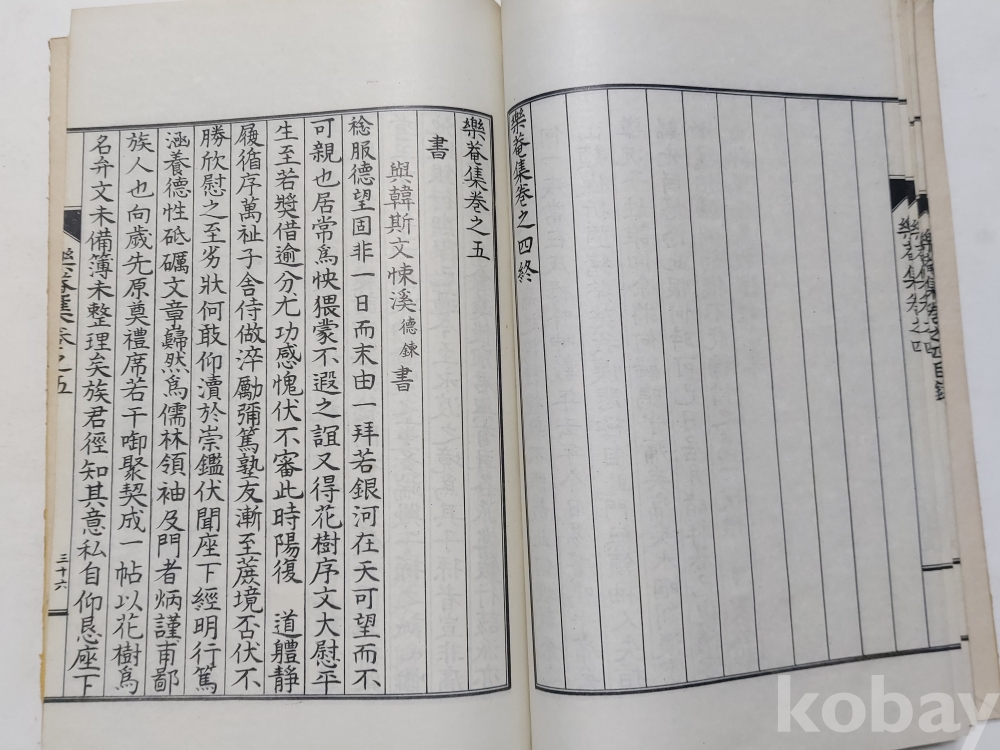 樂菴集卷之四終
樂菴集卷之五
書
與韓斯文悚溪德鍊書
稔服德望固非一日而末由一拜若銀河在天可望而不
可親也居常爲怏猥蒙不遐之誼又得花樹序文大慰平
生至若奬借逾分尤功感愧伏不審此時陽復 道軆靜
履循序萬祉子舍侍做淬勵彌篤塾友漸至蔗境否伏不
勝欣慰之至劣狀何敢仰瀆於崇鑑伏聞座下經明行篤
涵養德性砥礪文章巋然爲儒林領袖及門者炳謹甫鄙
族人也向歲先原奠禮席若干啣聚契成一帖以花樹爲
名弁文未備簿未整理矣族君徑知其意私自仰恳座下
樂菴集卷之五
三十六
樂菴集卷之四
樂菴集卷之四目錄
kobay